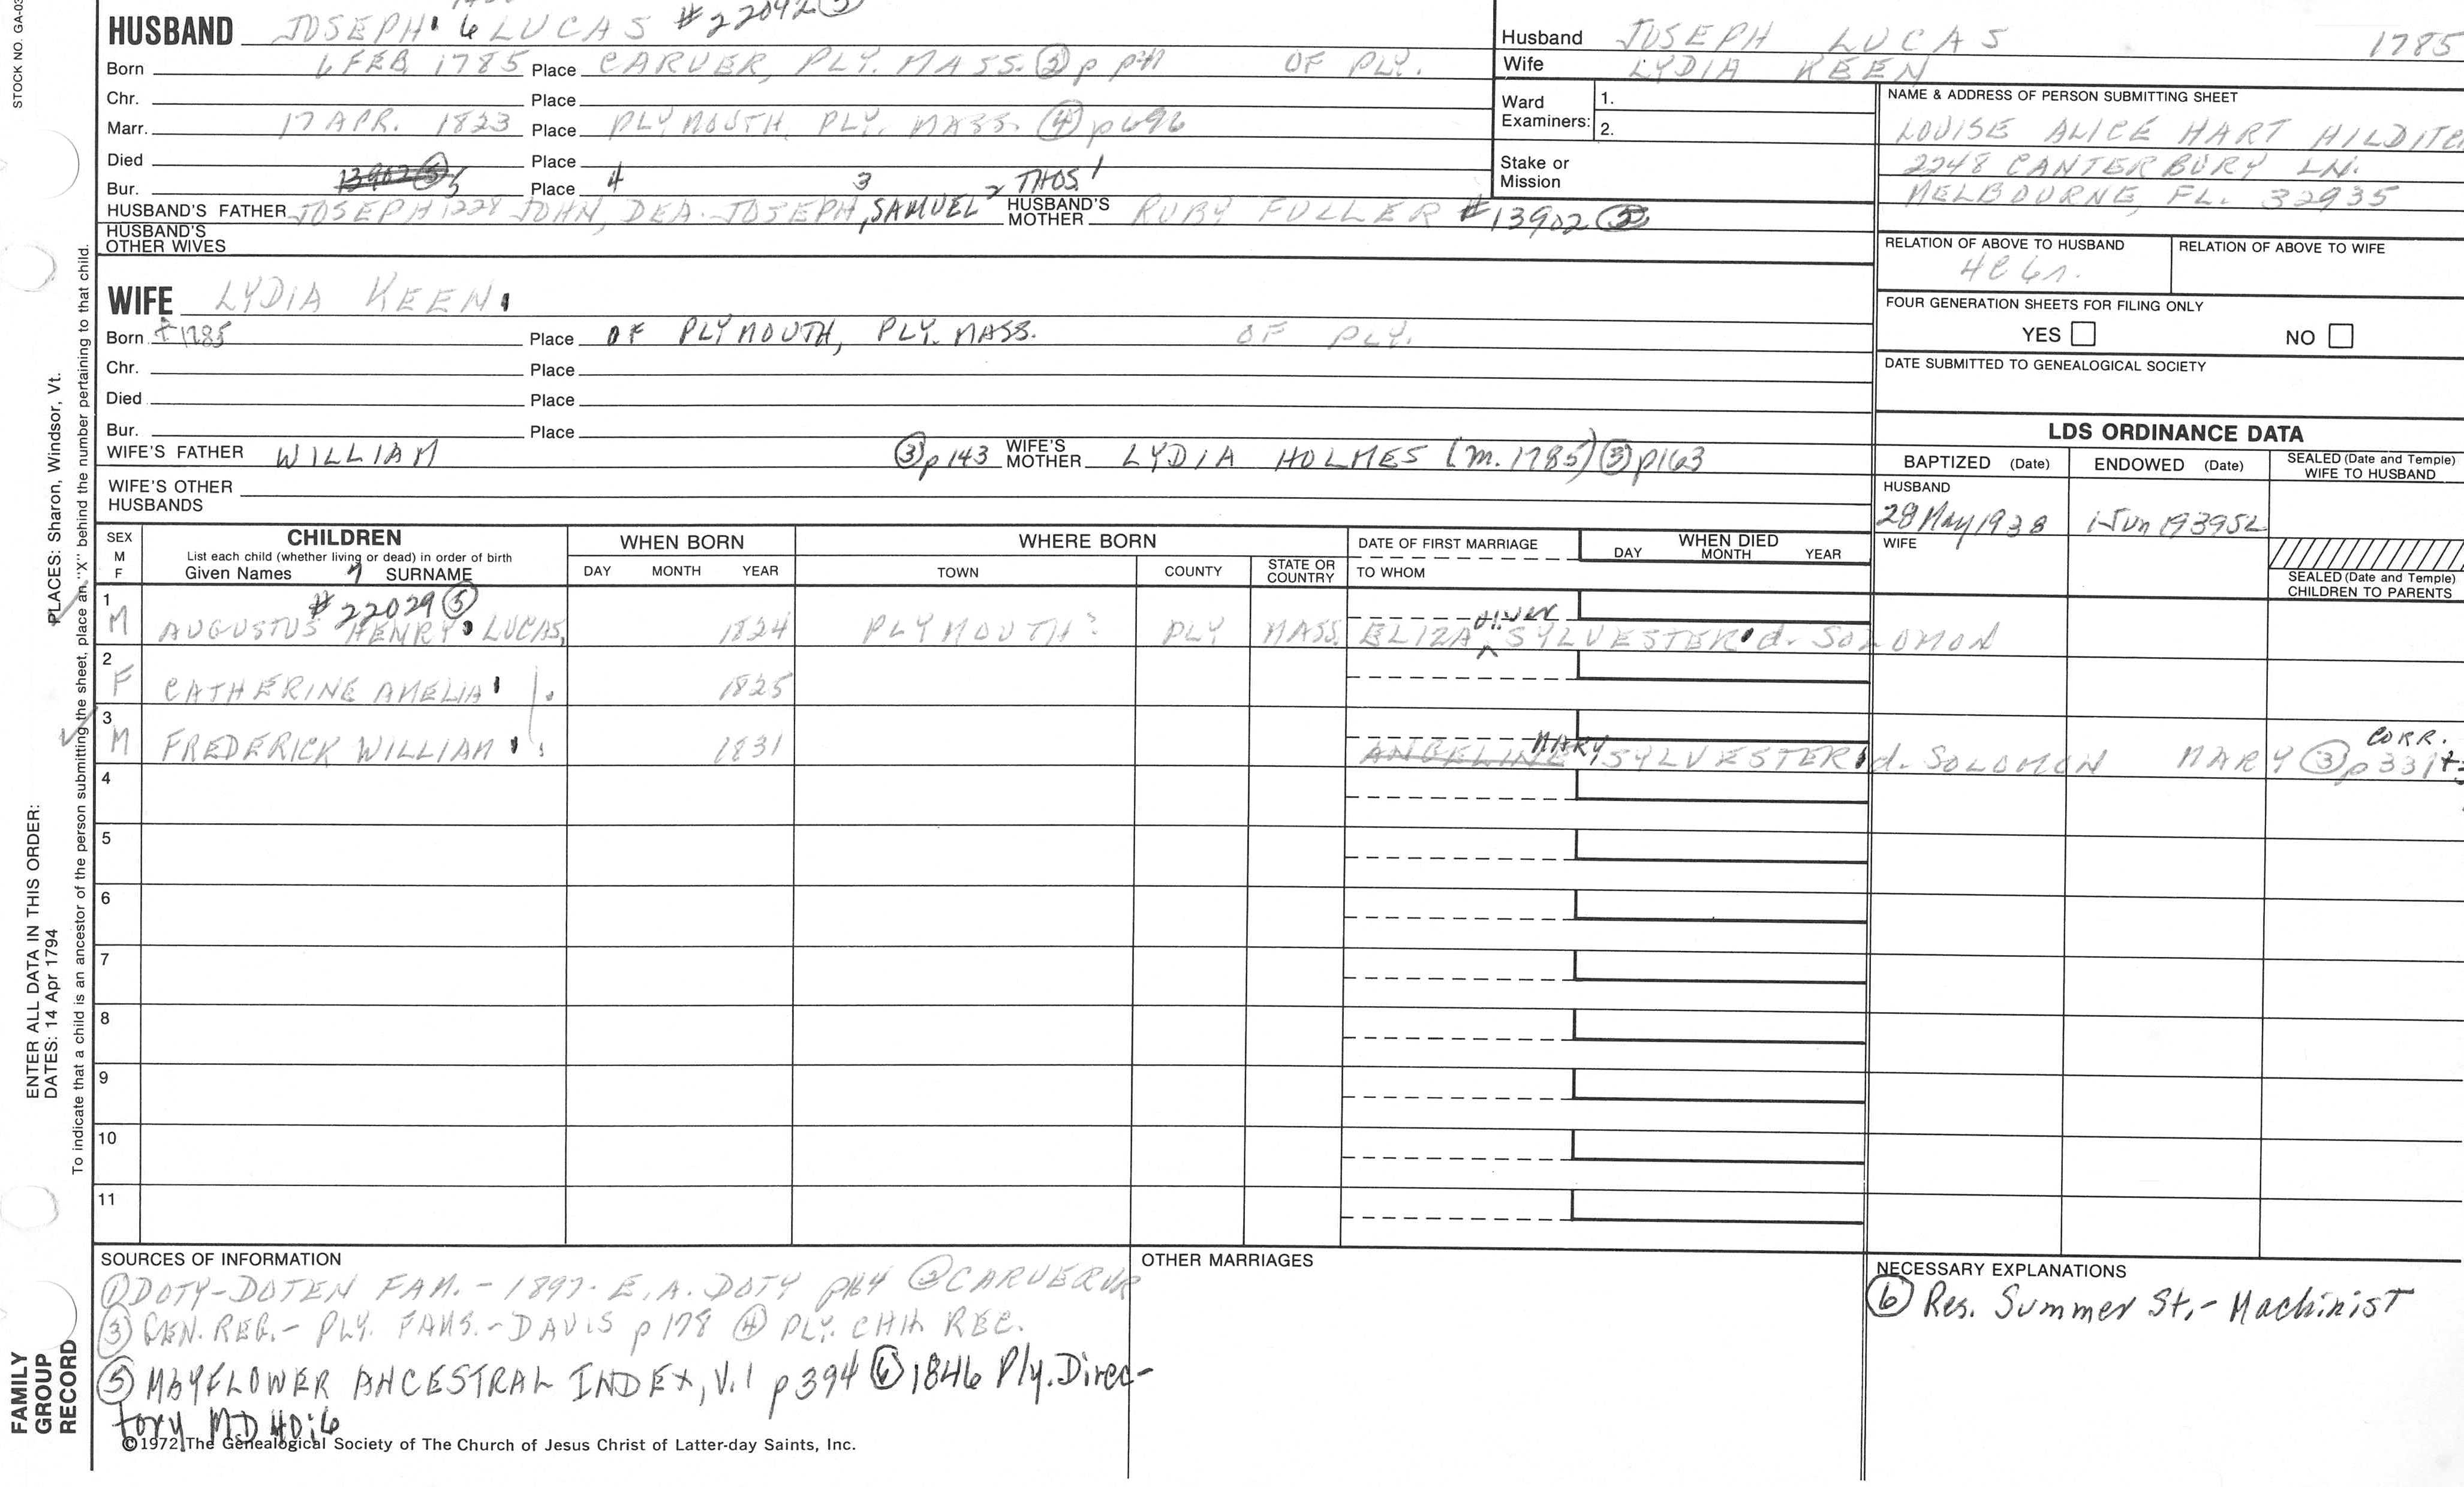 STOCK NO. GA-03
HUSBAND JOSEPH 6 LUCAS #22042 (5)
Born 6 FEB 1785 Place CARVER, PLY. MASS. (2) p OF PLY.
Chr. Place
Marr. 17 APR. 1823 Place PLYMOUTH, PLY. MASS. (4) p696
Died Place
Bur. 13902 (5) 5 Place 4 3 2 THOS 1
HUSBAND'S FATHER JOSEPH 1228 JOHN, DEA. JOSEPH, SAMUEL HUSBAND'S MOTHER RUBY FULLER #13902 (5)
HUSBAND'S OTHER WIVES
Husband JOSEPH LUCAS 1785
Wife LYDIA KEEN
Ward Examiners: 1.
2.
Stake or Mission
NAME & ADDRESS OF PERSON SUBMITTING SHEET
LOUISE ALICE HART
2248 CANTERBURY LN.
MELBOURNE, FL. 32935
RELATION OF ABOVE TO HUSBAND
RELATION OF ABOVE TO WIFE
FOUR GENERATION SHEETS FOR FILING ONLY
YES NO
DATE SUBMITTED TO GENEALOGICAL SOCIETY
WIFE LYDIA KEEN
Born 1785 Place OF PLYMOUTH, PLY. MASS. OF PLY.
Chr. Place
Died Place
Bur. Place
WIFE'S FATHER WILLIAM (3) p143 WIFE'S MOTHER LYDIA HOLMES (m. 1785) (3) p163
WIFE'S OTHER HUSBANDS
LDS ORDINANCE DATA
BAPTIZED (Date) ENDOWED (Date) SEALED (Date and Temple) WIFE TO HUSBAND
HUSBAND
28 May 1938 1 Jun 1939 SL
WIFE
SEALED (Date and Temple) CHILDREN TO PARENTS
SEX M F
CHILDREN
List each child (whether living or dead) in order of birth
Given Names 7 SURNAME
WHEN BORN
DAY MONTH YEAR
WHERE BORN
TOWN COUNTY STATE OR COUNTRY
DATE OF FIRST MARRIAGE
TO WHOM
WHEN DIED
DAY MONTH YEAR
1 #22029 (5)
M AUGUSTUS HENRY LUCAS, 1824 PLYMOUTH? PLY MASS. ELIZA SYLVESTER d. SOLOMON
2
F CATHERINE AMELIA 1825
3
M FREDERICK WILLIAM 1831 ANGELINE MARY SYLVESTER d. SOLOMON MARY (3) p331 CORR.
4
5
6
7
8
9
10
11
SOURCES OF INFORMATION
(1) DOTY-DOTEN FAM. - 1897 - E. A. DOTY p164 (2) CARVER VR
(3) GEN. REG. - PLY. FAMS. - DAVIS p178 (4) PLY. CHH. REC.
(5) MAYFLOWER ANCESTRAL INDEX, V.1 p394 (6) 1846 Ply. Direc-
tory MD 40:6
©1972 The Genealogical Society of The Church of Jesus Christ of Latter-day Saints, Inc.
OTHER MARRIAGES
NECESSARY EXPLANATIONS
(6) Res. Summer St. - Machinist
ENTER ALL DATA IN THIS ORDER:
DATES: 14 Apr 1794
PLACES: Sharon, Windsor, Vt.
To indicate that a child is an ancestor of the person submitting the sheet, place an "X" behind the number pertaining to that child.
FAMILY
GROUP
RECORD